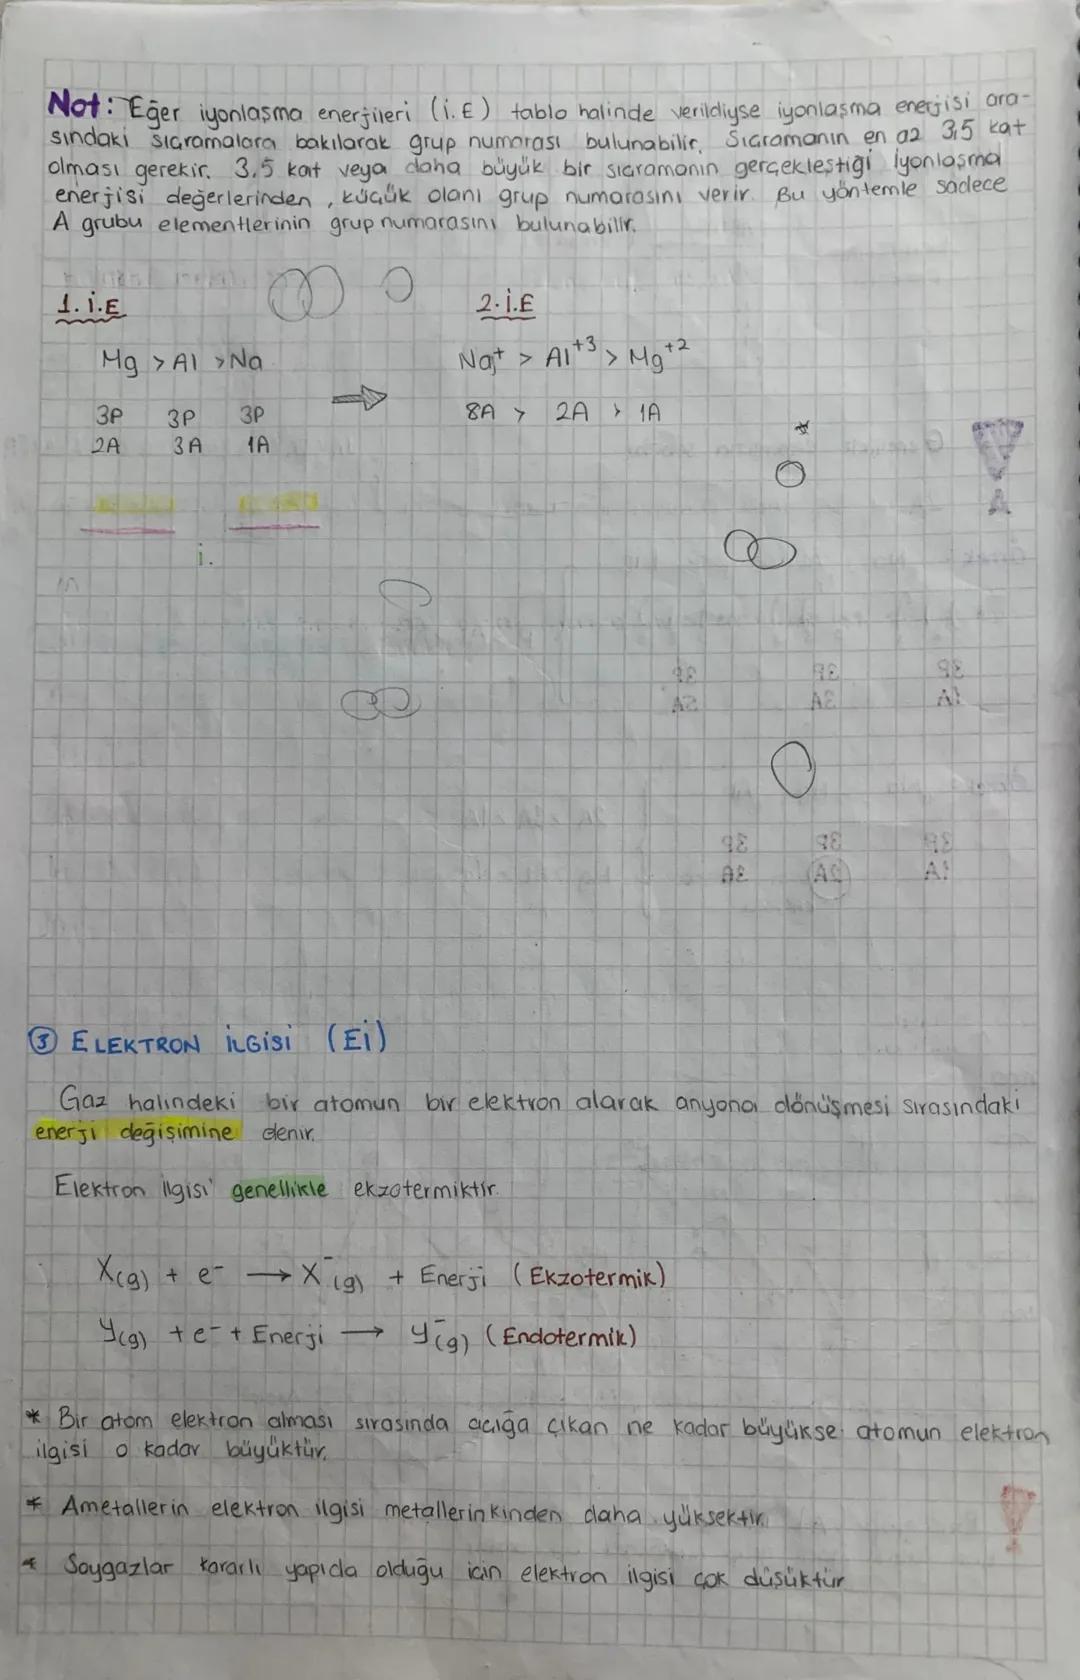 Not: Eğer iyonlaşma enerjileri (i.E) tablo halinde verildiyse iyonlaşma enerjisi ara-
sındaki sıçramalara bakılarak grup numarası bulunabilir. Sıçramanın en az 3,5 kat
olması gerekir. 3,5 kat veya daha büyük bir sıçramanın gerçekleştiği iyonlaşma
enerjisi değerlerinden, küçük olanı grup numarasını verir. Bu yöntemle sadece
A grubu elementlerinin grup numarasını bulunabilir.
1. İ.E
2. İ.E
Mg > Al > Na
Na+ > Al+3 > Mg+2
3P 3P 3P
8A > 2A > 1A
2A 3A 1A
i.
③ ELEKTRON İLGİSİ (Eİ)
Gaz halindeki bir atomun bir elektron alarak anyona dönüşmesi sırasındaki
enerji değişimine denir.
Elektron ilgisi genellikle ekzotermiktir.
X(g) + e- → X-(g) + Enerji (Ekzotermik)
Y(g) + e- + Enerji → Y-(g) (Endotermik)
* Bir atom elektron alması sırasında açığa çıkan ne kadar büyükse atomun elektron
ilgisi o kadar büyüktür.
* Ametallerin elektron ilgisi metallerinkinden daha yüksektir.
* Soygazlar kararlı yapıda olduğu için elektron ilgisi çok düşüktür